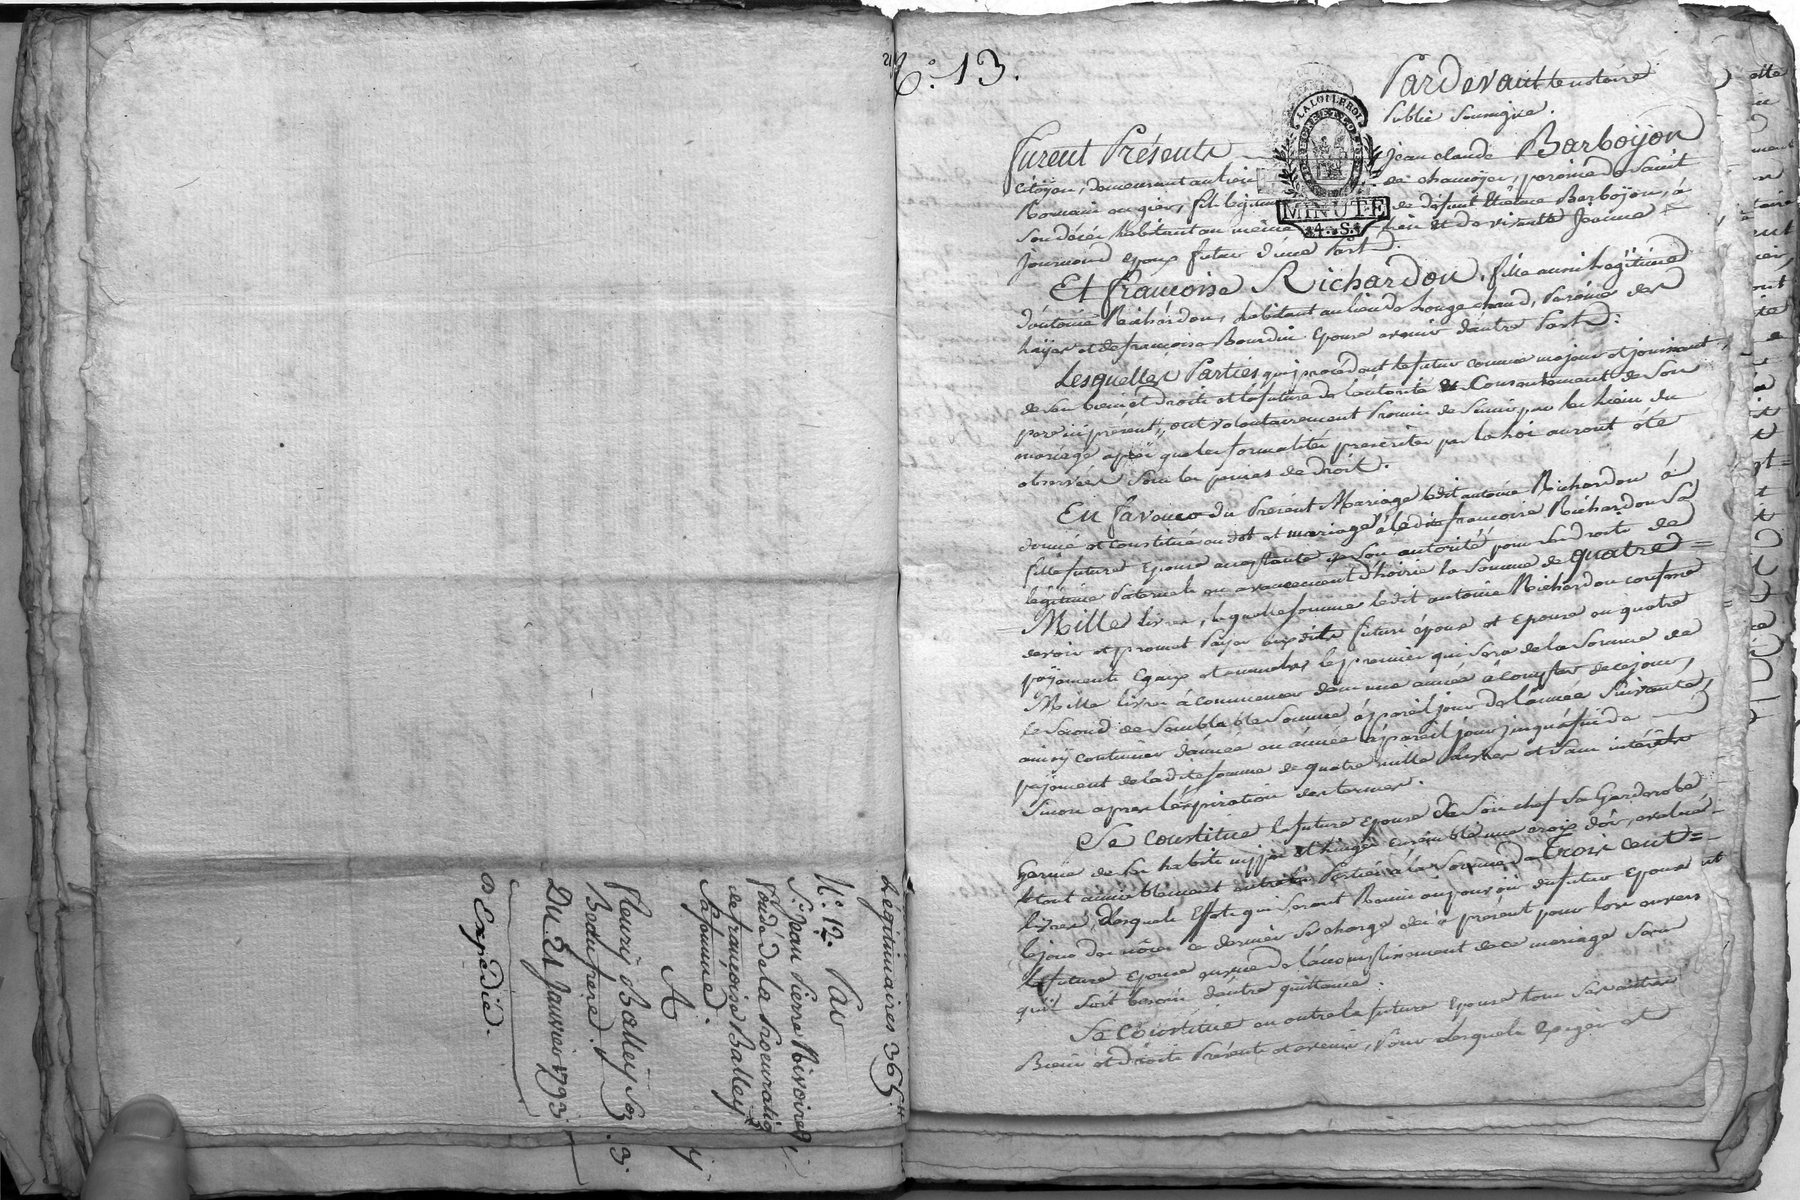 Légitimaires 365.tt
N.o 12. Par
S.r Jean Pierre Rivoire
fondé de la Procuration
de françoise Balley
Sa femme.
A
fleury Balley Son
Beaufrere.
Du 21 Janvier 1793
Expédié.
N.o 13.
Pardevant le notaire
Public Soussigné.
LA LOI LE ROI
MINUTE
4. S.
furent Présents Jean claude Barboyon
citoyen, demeurant au lieu de chamoyer, paroisse de Saint
Romain en gier, fils légitime de défunt Etienne Barboyon, à
Son décés habitant au même lieu et de vivante Jeanne
époux futur d'une Part.
Et françoise Richardon, fille aussi Légitime
d'antoine Richardon, habitant au lieu de Longe chaud, Paroisse des
hayes et de françoise Bourdin Epouse avenir d'autre Part:
Lesquelles Parties qui procédent le futur comme majeur et jouissant
de Ses biens et droits et la future de l'autorité et Consentement de Son
pere ici présent, ont volontairement Promis de S'unir par les liens du
mariage après que les formalités prescrites par la Loi auront été
observées Sous les peines de droit.
En faveur du Présent Mariage ledit antoine Richardon à
donné et constitué en dot et mariage à ladite françoise Richardon Sa
fille future Epouse acceptante de Son autorité pour Ses droits de
légitime Paternels en avancement d'hoirie la Somme de quatre
Mille livres, laquelle Somme ledit antoine Richardon confesse
devoir et promet Payer auxdits futurs époux et Epouse en quatre
payements Egaux et annuels, le premier qui Sera de la Somme de
Mille livres à commencer d'en une année à compter de ce jour,
le Second de Semblable Somme à pareil jour de l'année Suivante,
ainsi continuer d'année en année à pareil jour jusqu'à fin de
payement de ladite Somme de quatre mille livres et Sans intérêts
Sinon après l'expiration des termes.
Se constitue la future Epouse de Son chef Sa Garderobe
Garnie de Ses habits nippes et linges ensemble une croix d'or, évalué
le tout amiablement entre les Parties à la Somme de Trois cent
livres, desquels Effets qui Seront Remis au pouvoir du futur Epoux
le jour des nôces ce dernier Se charge dès à présent pour lors envers
la future Epouse ensuite de l'accomplissement de ce mariage Sans
qu'il Soit besoin d'autre quittance.
Se Constitue en outre la future Epouse tous Ses autres
Biens et droits Présents et avenir, Pour lesquels Exiger et